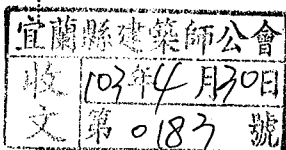 宜蘭縣建築師公會
收文
103年4月30日
第0183號